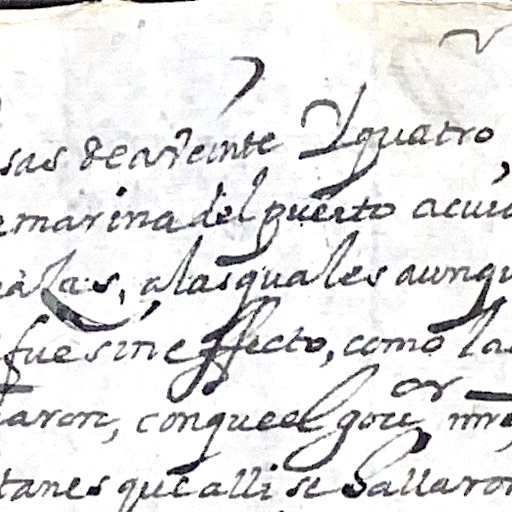 sas de a veinte y quatro,
marina del puerto acui
las, a las quales aunqu
fue sin effecto, como la
aron, con que el gou.or nro
tanes que alli se hallaron